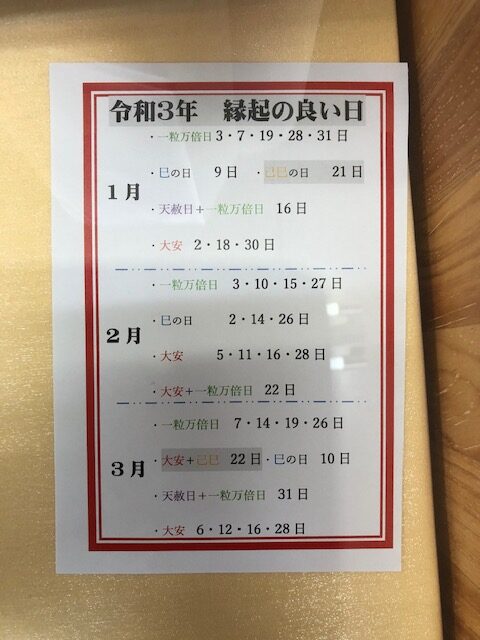 令和3年 縁起の良い日
・一粒万倍日 3・7・19・28・31日
・巳の日 9日 ・己巳の日 21日
1月
・天赦日＋一粒万倍日 16日
・大安 2・18・30日
・一粒万倍日 3・10・15・27日
・巳の日 2・14・26日
2月
・大安 5・11・16・28日
・大安＋一粒万倍日 22日
・一粒万倍日 7・14・19・26日
3月
・大安＋己巳 22日・巳の日 10日
・天赦日＋一粒万倍日 31日
・大安 6・12・16・28日